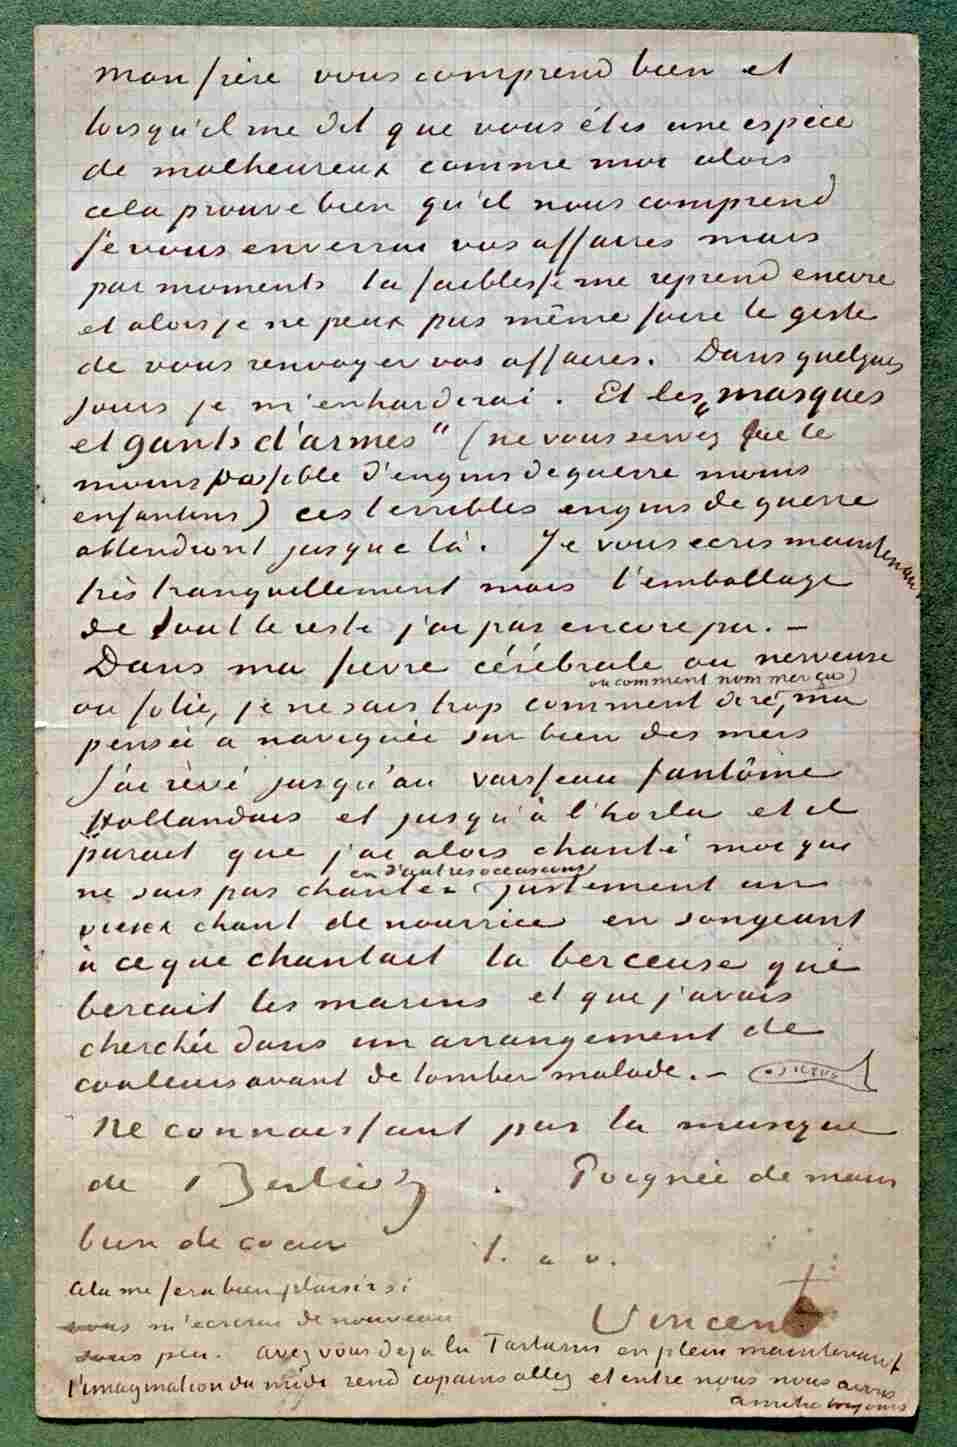 mon frère vous comprend bien et
lorsqu'il me dit que vous êtes une espèce
de malheureux comme moi alors
cela prouve bien qu'il nous comprend
Je vous enverrai vos affaires mais
par moments la faiblesse me reprend encore
et alors je ne peux pas même faire le geste
de vous renvoyer vos affaires. Dans quelques
jours je m'enhardirai. Et les „masques
et gants d'armes" (ne vous servez que le
moins possible d'engins de guerre moins
enfantins) ces terribles engins de guerre
attendront jusque là. Je vous ecris maintenant
très tranquillement mais l'emballage
de tout le reste j'ai pas encore pu. —
Dans ma fievre cérébrale ou nerveuse
ou comment nommer ça)
ou folie, je ne sais trop comment dire, ma
pensée a naviguée sur bien des mers
J'ai rêvé jusqu'au vaisseau fantôme
Hollandais et jusqu'à l'horla et il
parait que j'ai alors chanté moi qui
en d'autres occasions
ne sais pas chanter justement un
vieux chant de nourrice en songeant
à ce que chantait la berceuse qui
bercait les marins et que j'avais
cherchée dans un arrangement de
couleurs avant de tomber malade. —
Ne connaissant pas la musique
de Berlioz. Poignée de main
bien de coeur t. à v.
Cela me fera bien plaisir si
Vincent
vous m'ecrivez de nouveau
sous peu. avez vous deja lu Tartarin en plein maintenant
l'imagination du midi rend copains allez et entre nous nous avons
amitié toujours